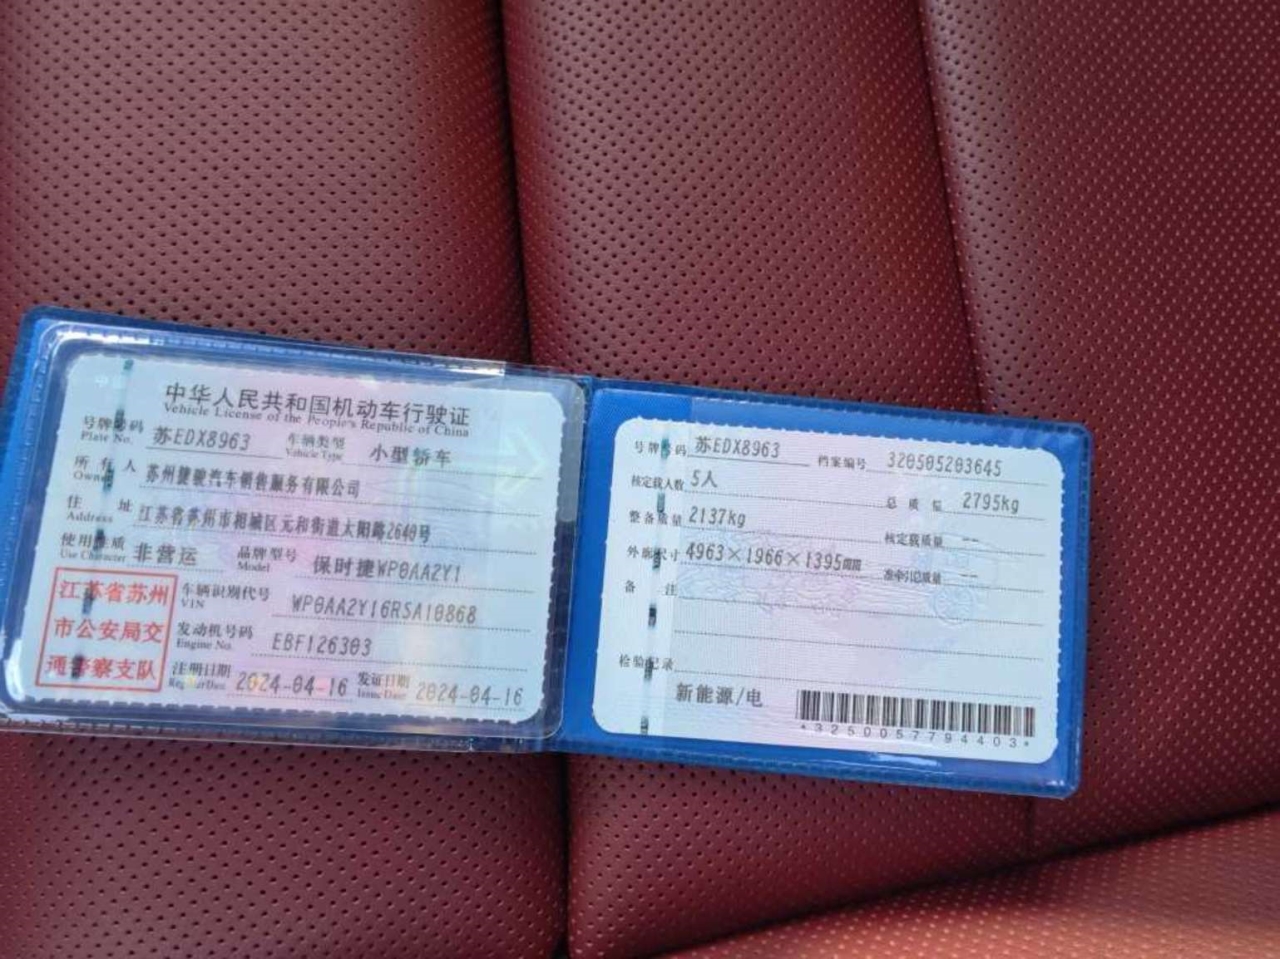 中华人民共和国机动车行驶证
Vehicle License of the People's Republic of China
号牌号码 苏EDX8963 车辆类型 小型轿车
Plate No. Vehicle Type
所有人 苏州捷骏汽车销售服务有限公司
Owner
住址 江苏省苏州市相城区元和街道太阳路2640号
Address
使用性质 非营运 品牌型号 保时捷WP0AA2Y1
Use Character Model
江苏省苏州
市公安局交
通警察支队
车辆识别代号 WP0AA2Y16RSA10868
VIN
发动机号码 EBF126303
Engine No.
注册日期 2024-04-16 发证日期 2024-04-16
Register Date Issue Date
号牌号码 苏EDX8963 档案编号 320505203645
核定载人数 5人 总质量 2795kg
整备质量 2137kg 核定载质量 --
外廓尺寸 4963×1966×1395mm 准牵引总质量 --
备注
检验记录
新能源/电
*3250057794403*